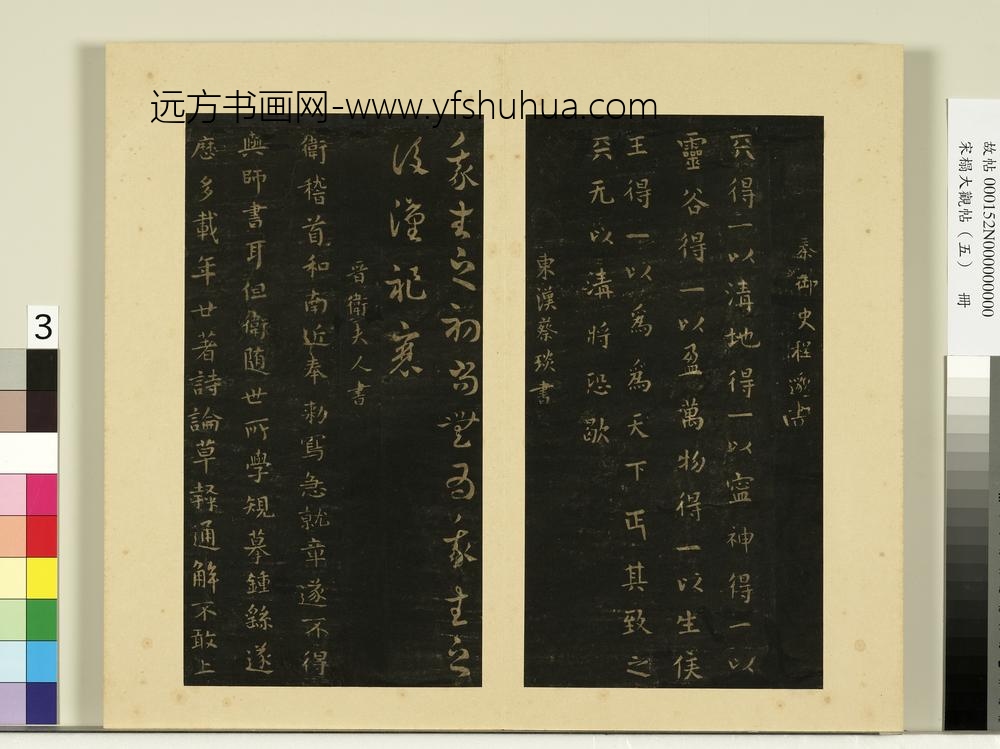 远方书画网-www.yfshuhua.com
秦御史程邈書
天得一以清地得一以寍神得一以
靈谷得一以盈萬物得一以生侯
王得一以爲爲天下正其致之
天无以清將恐歇
東漢蔡琰書
我生之初尚無爲我生之
後漢祚衰
晉衛夫人書
衛稽首和南近奉勅寫急就章遂不得
與師書耳但衛随世所學規摹鍾繇遂
歷多載年廿著詩論草隸通解不敢上
故帖000152N000000000
宋搨大觀帖（五） 冊
3